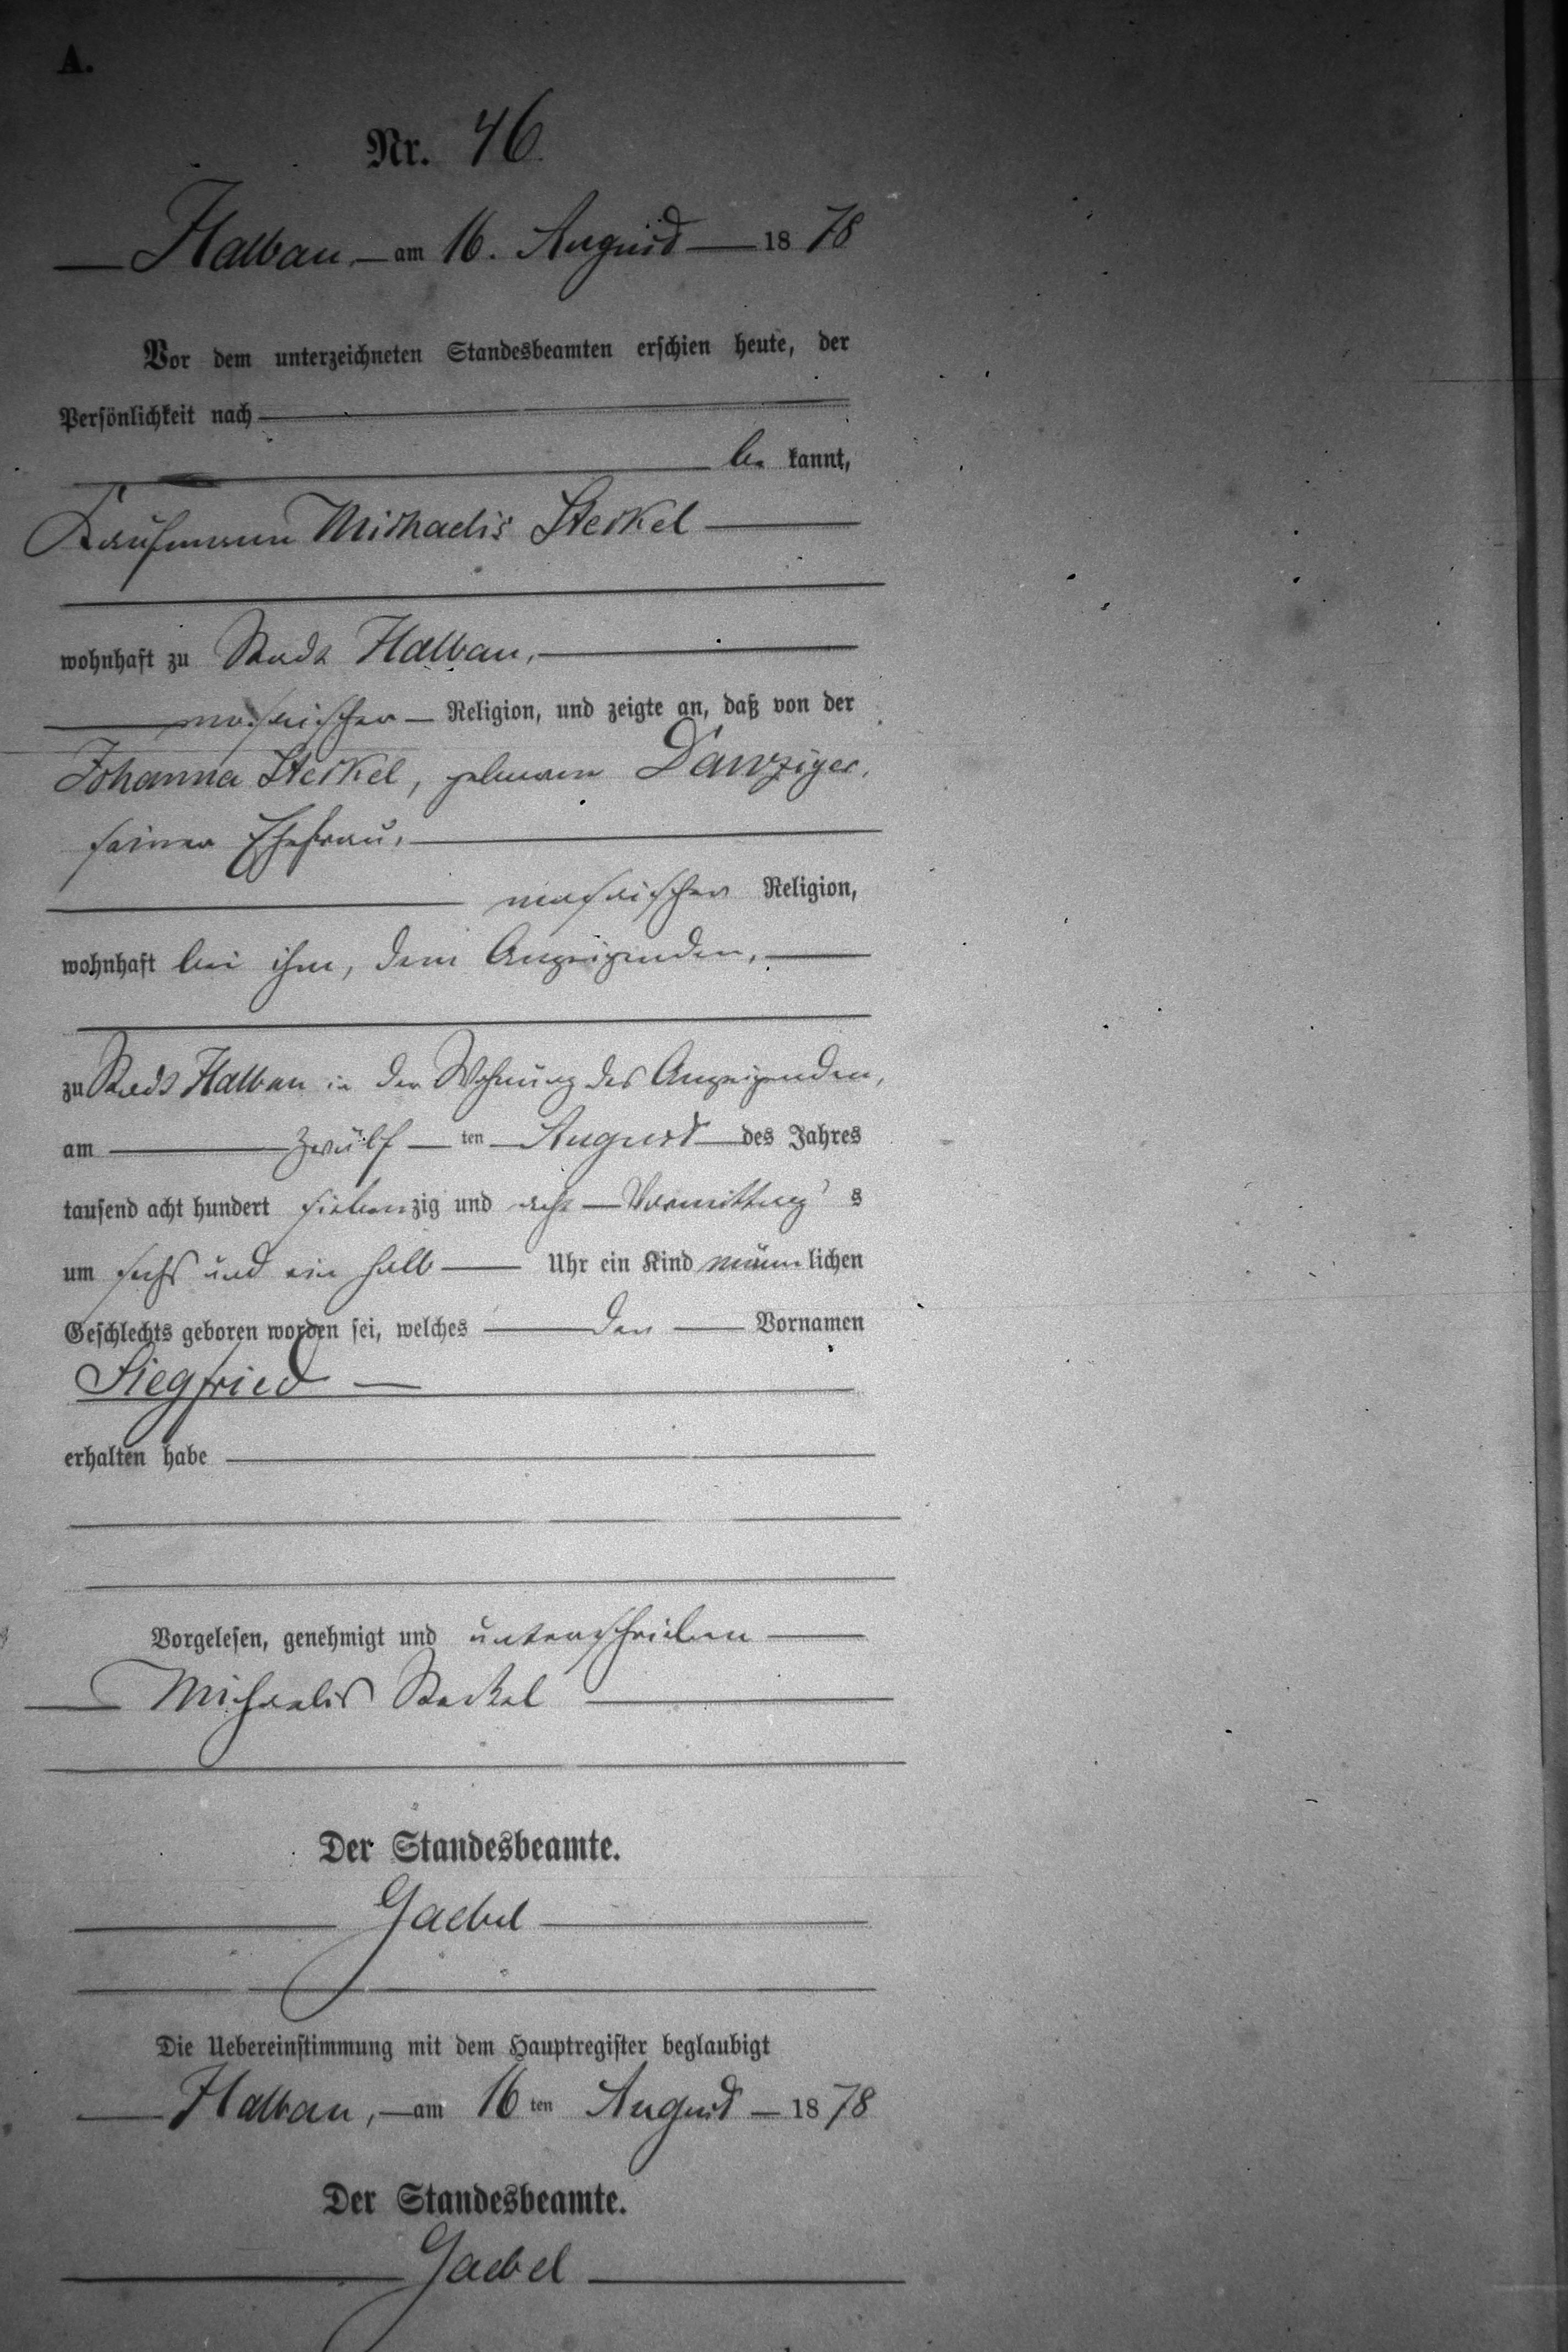 A.
Nr. 46
Halbau, am 16. August 1878
Vor dem unterzeichneten Standesbeamten erschien heute, der
Persönlichkeit nach
be kannt,
Kaufmann Michaelis Steckel
wohnhaft zu Stadt Halbau,
mosaischer Religion, und zeigte an, daß von der
Johanna Steckel, geborene Danziger,
seiner Ehefrau,
mosaischer Religion,
wohnhaft bei ihm, dem Anzeigenden,
zu Stadt Halbau in der Wohnung des Anzeigenden,
am zwölf ten August des Jahres
tausend acht hundert siebenzig und acht Vormittag s
um sechs und ein halb Uhr ein Kind männlichen
Geschlechts geboren worden sei, welches den Vornamen
Siegfried
erhalten habe
Vorgelesen, genehmigt und unterschrieben
Michaelis Steckel
Der Standesbeamte.
Gaebel
Die Uebereinstimmung mit dem Hauptregister beglaubigt
Halbau, am 16 ten August 1878
Der Standesbeamte.
Gaebel